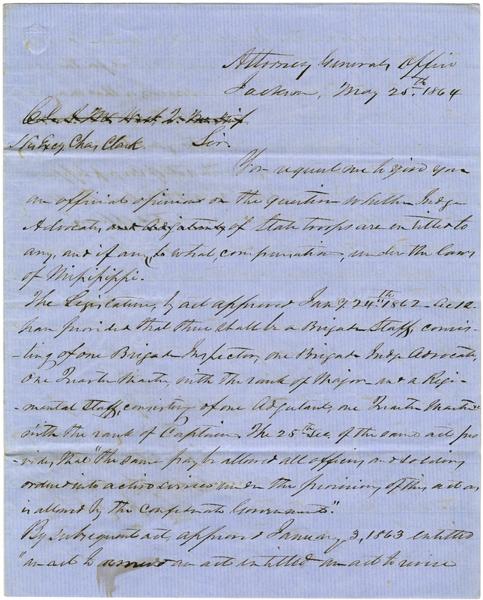 Attorney Generals Office
Jackson, May 25th 1864
His Excy Chas Clark Sir
You request me to give you
an official opinion on the question whether Judge
Advocates and Adjutants of State troops are entitled to
any, and if any, to what, compensation, under the laws
of Mississippi.
The Legislature, by act approved Jany 29th 1862
provided that there shall be a Brigade Staff, consis-
ting of one Brigade Inspector, one Brigade Judge Advocate,
One Quarter Master, with the rank of Major and a Regi-
mental Staff, consisting of one Adjutant, one Quarter Master
with the rank of Captain. The 25th Sec. of the same act pro-
vides, that "the same pay be allowed all officers and soldiers
ordered into active service under the provisions of this act as
is allowed by the confederate Government."
By subsequent act, approved January 3, 1863 entitled
"an act to amend an act entitled an act to revise